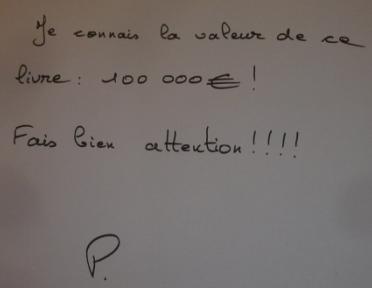 Je connais la valeur de ce
livre : 100 000 € !
Fais bien attention !!!!
P.